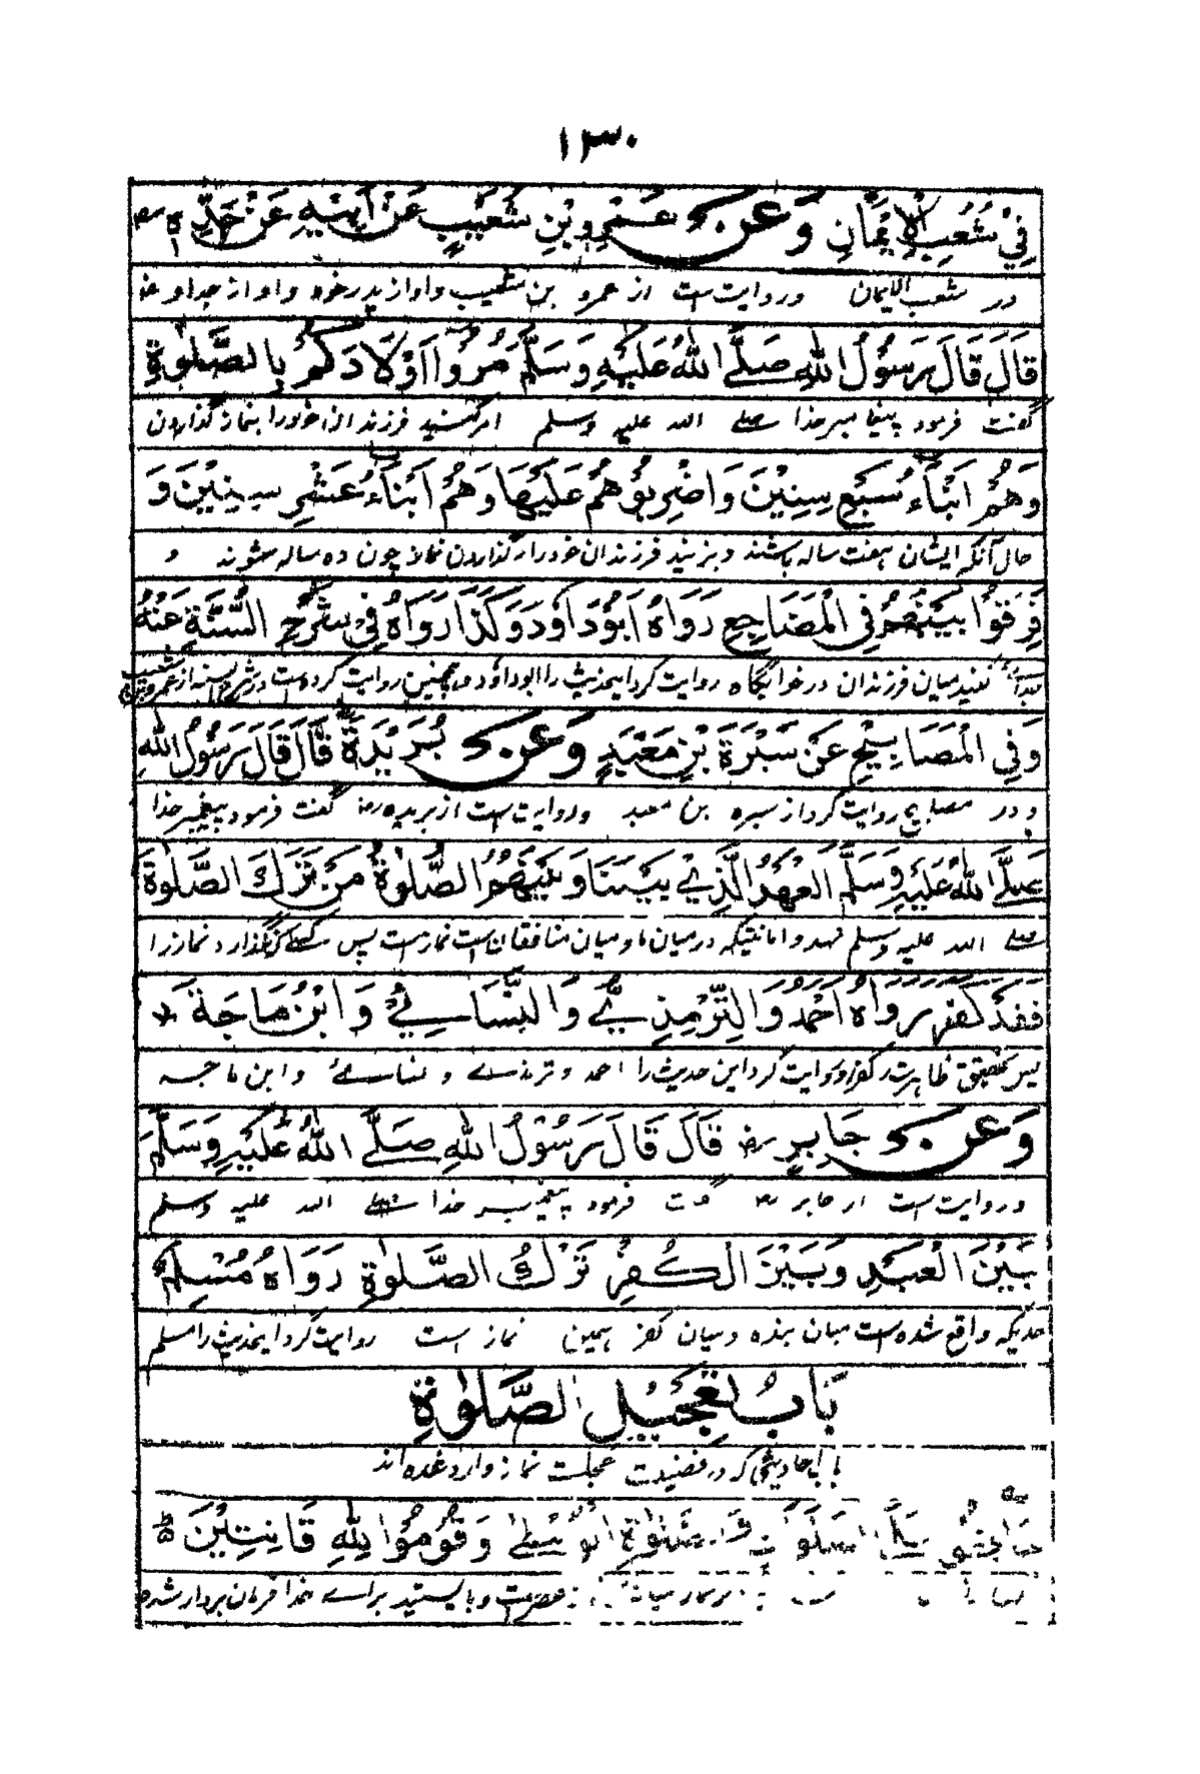 ١٣٠
فِيْ شُعَبِ الْاِيْمَانِ وَعَنْ عَمْرِو بْنِ شُعَيْبٍ عَنْ اَبِيْهِ عَنْ جَدِّهٖ رض
در شعب الایمان وروایت ست از عمرو بن شعیب واو از پدر خود واو از جد او
قَالَ قَالَ رَسُوْلُ اللهِ صَلَّے اللهُ عَلَيْهِ وَسَلَّمَ مُرُوْا اَوْلَادَكُمْ بِالصَّلٰوةِ
گفت فرمود پیغامبر خدا صلے الله علیه وسلم امر کنید فرزندان خود را بنماز گذاردن
وَهُمْ اَبْنَاءُ سَبْعِ سِنِيْنَ وَاضْرِبُوْهُمْ عَلَيْهَا وَهُمْ اَبْنَاءُ عَشْرِ سِنِيْنَ وَ
حال آنکه ایشان هفت ساله باشند و بزنید فرزندان خود را بر گذاردن نماز چون ده ساله شوند و
فَرِّقُوْا بَيْنَهُمْ فِي الْمَضَاجِعِ رَوَاهُ اَبُوْدَاوُدَ وَكَذَا رَوَاهُ فِيْ شَرْحِ السُّنَّةِ عَنْهُ
کنید میان فرزندان در خوابگاه روایت کرد اینحدیث را ابوداؤد و همچنین روایت کرده ست در شرح السنه از عمرو بن شعیب
وَفِي الْمَصَابِيْحِ عَنْ سَبْرَةَ بْنِ مَعْبَدٍ وَعَنْ بُرَيْدَةَ رض قَالَ قَالَ رَسُوْلُ اللهِ
و در مصابیح روایت کرد از سبره بن معبد وروایت ست از بریده رض گفت فرمود پیغمبر خدا
صَلَّے اللهُ عَلَيْهِ وَسَلَّمَ الْعَهْدُ الَّذِيْ بَيْنَنَا وَبَيْنَهُمُ الصَّلٰوةُ فَمَنْ تَرَكَ الصَّلٰوةَ
صلے الله علیه وسلم عهد و امانتیکه در میان ما و میان منافقان ست نماز ست پس کسے که نگذارد نماز را
فَقَدْ كَفَرَ رَوَاهُ اَحْمَدُ وَالتِّرْمِذِيُّ وَالنَّسَائِيُّ وَابْنُ مَاجَةَ *
پس بتحقیق ظاهر کرد کفر او روایت کرد این حدیث را احمد و ترمذے و نسائے و ابن ماجه
وَعَنْ جَابِرٍ رض قَالَ قَالَ رَسُوْلُ اللهِ صَلَّے اللهُ عَلَيْهِ وَسَلَّمَ
وروایت ست از جابر رض گفت فرمود پیغمبر خدا صلے الله علیه وسلم
بَيْنَ الْعَبْدِ وَبَيْنَ الْكُفْرِ تَرْكُ الصَّلٰوةِ رَوَاهُ مُسْلِمٌ
حدیکه واقع شده ست میان بنده و میان کفر همین نماز است روایت کرد اینحدیث را مسلم
بَابُ تَعْجِيْلِ الصَّلٰوةِ
باب احادیثی که در فضیلت عجلت نماز وارد شده اند
حَافِظُوْا عَلَى الصَّلَوٰتِ وَالصَّلٰوةِ الْوُسْطٰى وَقُوْمُوْا لِلّٰهِ قَانِتِيْنَ
عصر ست و بایستید براے خدا فرمان بردار شده